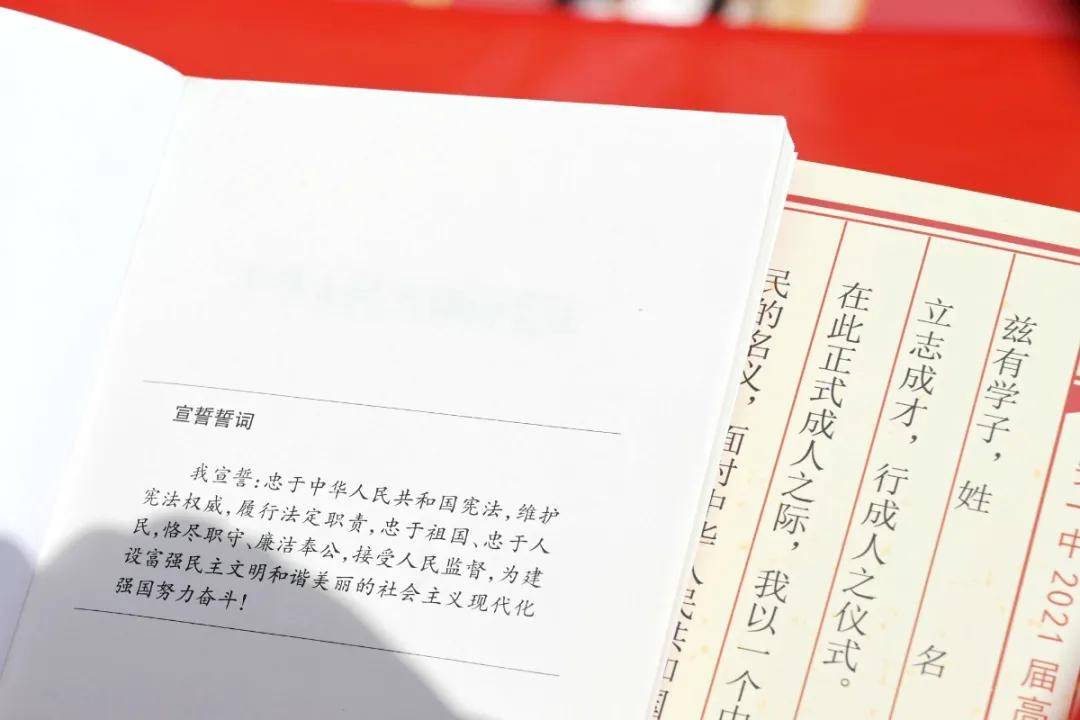 宣誓誓词
我宣誓：忠于中华人民共和国宪法，维护
宪法权威，履行法定职责，忠于祖国、忠于人
民，恪尽职守、廉洁奉公，接受人民监督，为建
设富强民主文明和谐美丽的社会主义现代化
强国努力奋斗！
中2021届高
兹有学子，姓 名
立志成才，行成人之仪式。
在此正式成人之际，我以一个中
民的名义，面对中华人民共和国